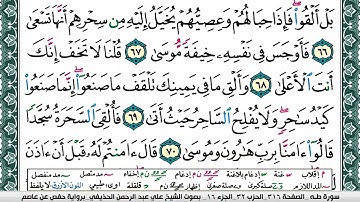 بَلْ أَلْقُوا۟ ۖ فَإِذَا حِبَالُهُمْ وَعِصِيُّهُمْ يُخَيَّلُ إِلَيْهِ مِن سِحْرِهِمْ أَنَّهَا تَسْعَىٰ
٦٦ فَأَوْجَسَ فِى نَفْسِهِۦ خِيفَةً مُّوسَىٰ ٦٧ قُلْنَا لَا تَخَفْ إِنَّكَ
أَنتَ ٱلْأَعْلَىٰ ٦٨ وَأَلْقِ مَا فِى يَمِينِكَ تَلْقَفْ مَا صَنَعُوٓا۟ ۖ إِنَّمَا صَنَعُوا۟
كَيْدُ سَـٰحِرٍ ۖ وَلَا يُفْلِحُ ٱلسَّاحِرُ حَيْثُ أَتَىٰ ٦٩ فَأُلْقِىَ ٱلسَّحَرَةُ سُجَّدًا
قَالُوٓا۟ ءَامَنَّا بِرَبِّ هَـٰرُونَ وَمُوسَىٰ ٧٠ قَالَ ءَامَنتُمْ لَهُۥ قَبْلَ أَنْ ءَاذَنَ
سورة طـه، الصفحة ٣١٦، الحزب ٣٢، الجزء ١٦ بصوت الشيخ علي عبد الرحمن الحذيفي برواية حفص عن عاصم